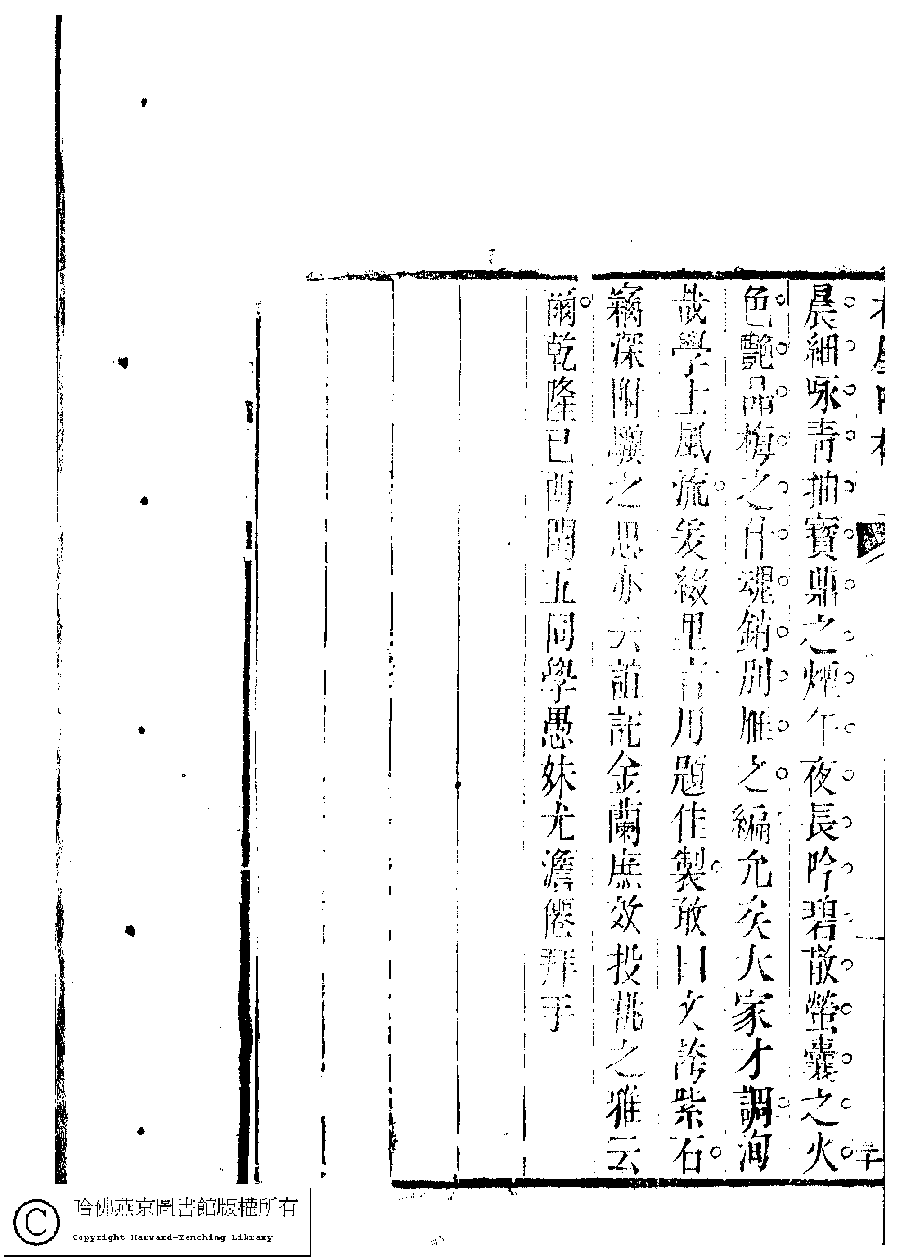 晨細咏青抽寶鼎之煙午夜長吟碧散螢囊之火
色艷品梅之什魂銷別雁之編允矣大家才調洵
哉學士風流爰綴里言用題佳製敢曰文誇紫石
竊深附驥之思亦云誼託金蘭庶效投桃之雅云
爾乾隆己酉閏五同學愚妹尤澹僊拜手
哈佛燕京圖書館版權所有
Copyright Harvard-Yenching Library